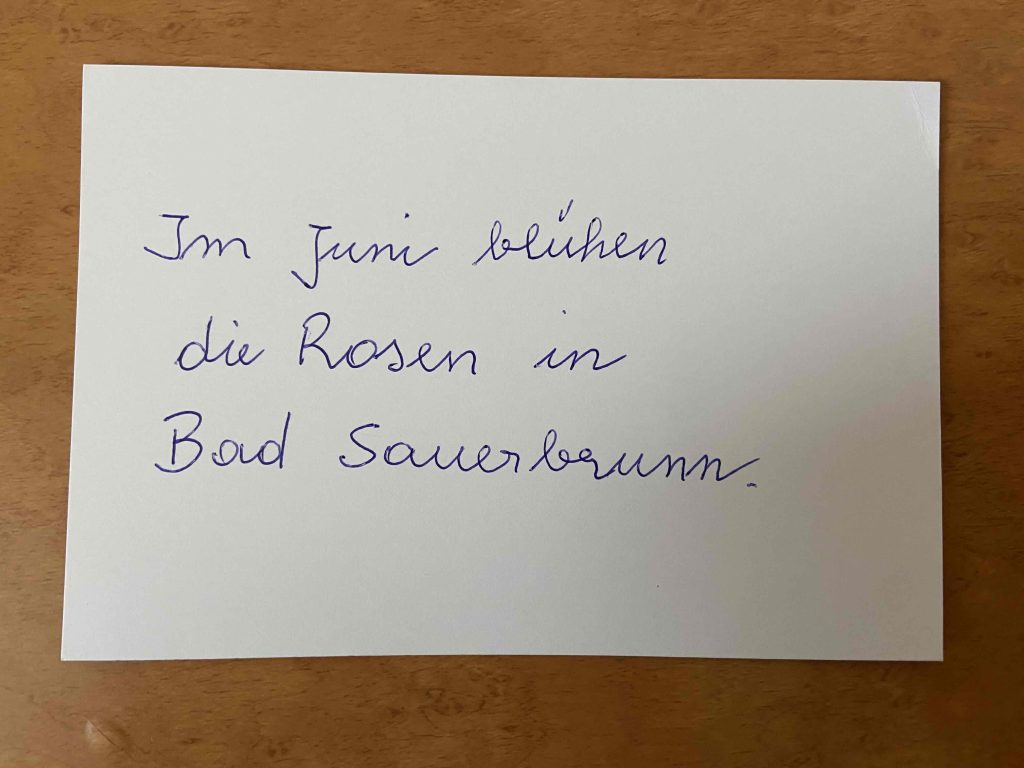 Im Juni blühen
die Rosen in
Bad Sauerbrunn.